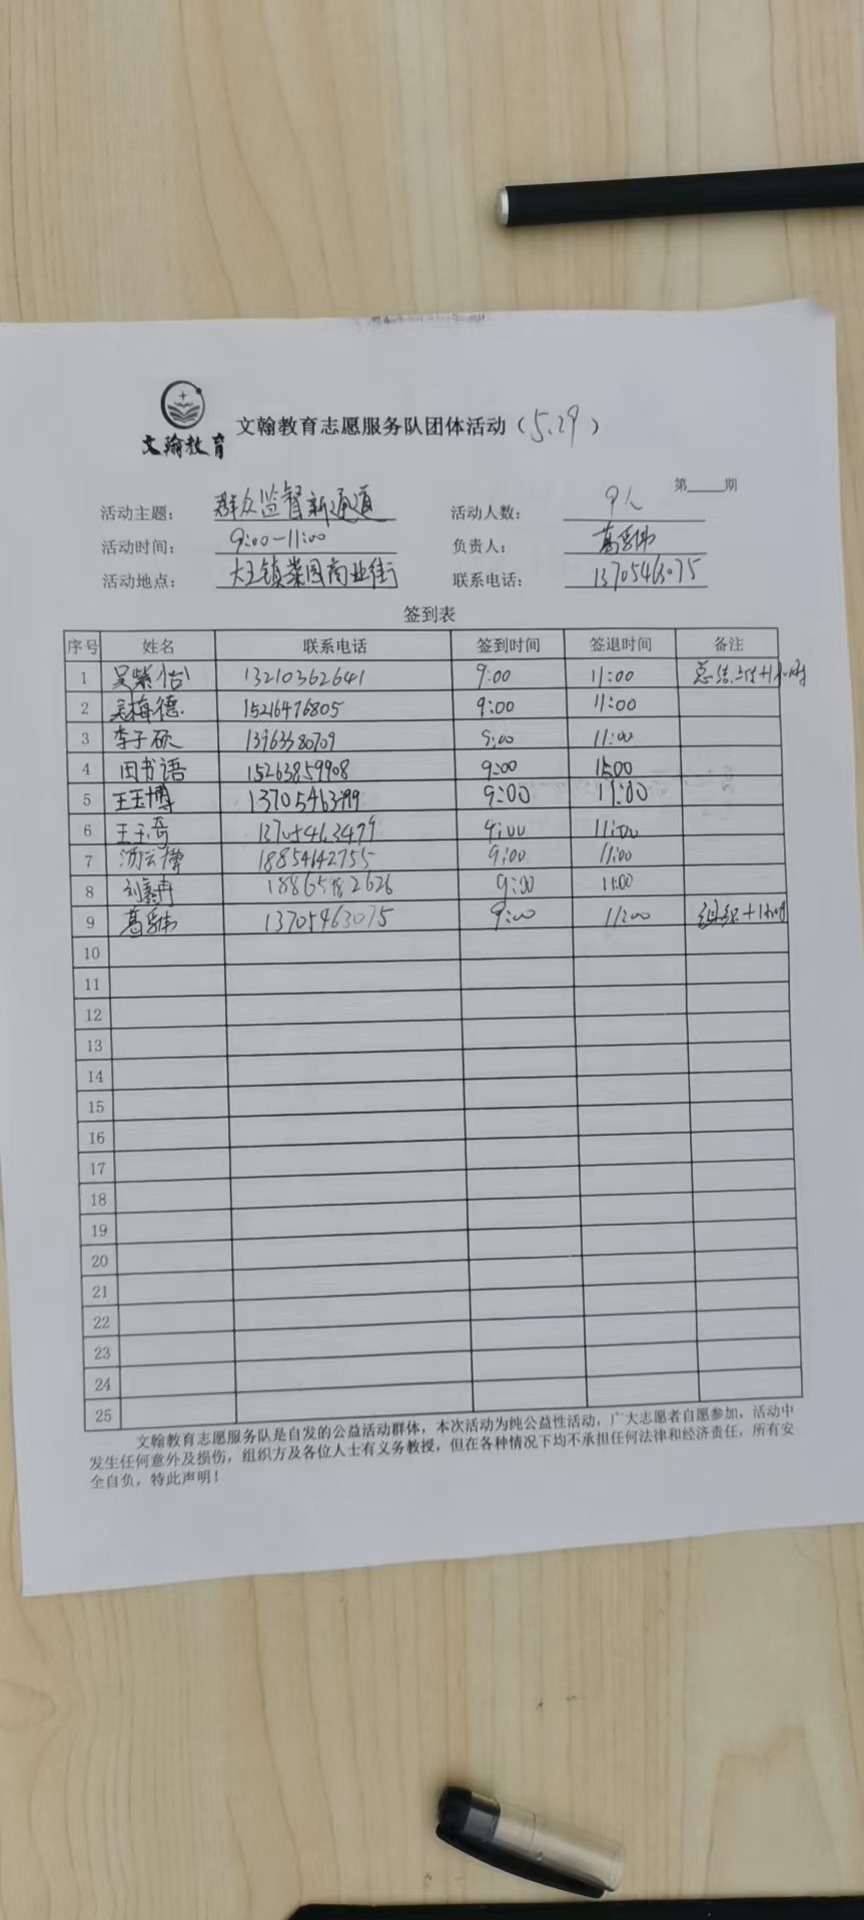 文翰教育
文翰教育志愿服务队团体活动（5.29）
第____期
活动主题： 群众监督新通道 活动人数： 9人
活动时间： 9:00-11:00 负责人： 葛
活动地点： 大王镇菜园商业街 联系电话： 13705463075
签到表
序号 姓名 联系电话 签到时间 签退时间 备注
1 吴紫怡 13210362641 9:00 11:00 总结 +1小时
2 吴梅德 15216476805 9:00 11:00
3 李子硕 13963380709 9:00 11:00
4 田书语 15263859908 9:00 11:00
5 王玉博 13705463499 9:00 11:00
6 王玉奇 13705463499 9:00 11:00
7 汤云博 18854142755 9:00 11:00
8 刘鑫冉 9:00 11:00
9 葛 13705463075 9:00 11:00 组织+1小时
10
11
12
13
14
15
16
17
18
19
20
21
22
23
24
25
文翰教育志愿服务队是自发的公益活动群体，本次活动为纯公益性活动，广大志愿者自愿参加，活动中
发生任何意外及损伤，组织方及各位人士有义务教授，但在各种情况下均不承担任何法律和经济责任，所有安
全自负，特此声明！